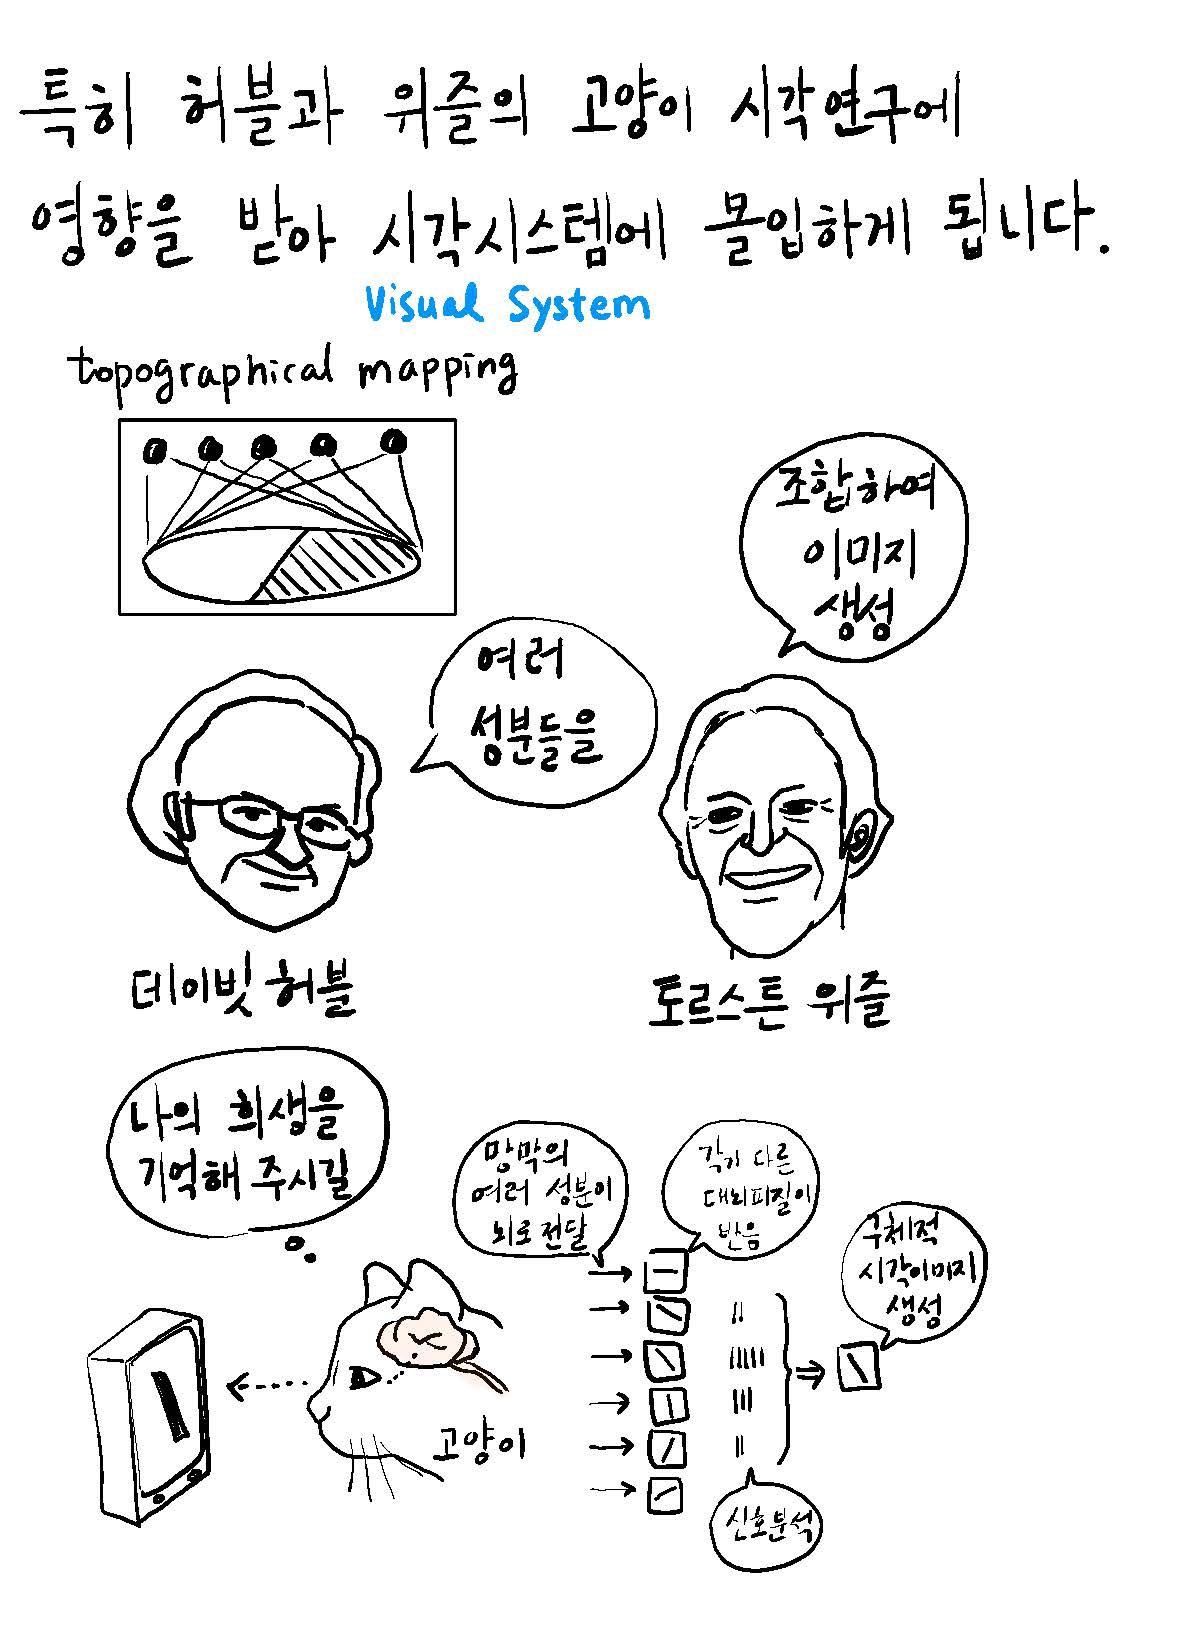 특히 허블과 위즐의 고양이 시각연구에
영향을 받아 시각시스템에 몰입하게 됩니다.
Visual System
topographical mapping
조합하여
이미지
생성
여러
성분들을
데이빗 허블
토르스튼 위즐
나의 희생을
기억해 주시길
망막의
여러 성분이
뇌로 전달
각기 다른
대뇌피질이
반응
구체적
시각이미지
생성
고양이
신호분석